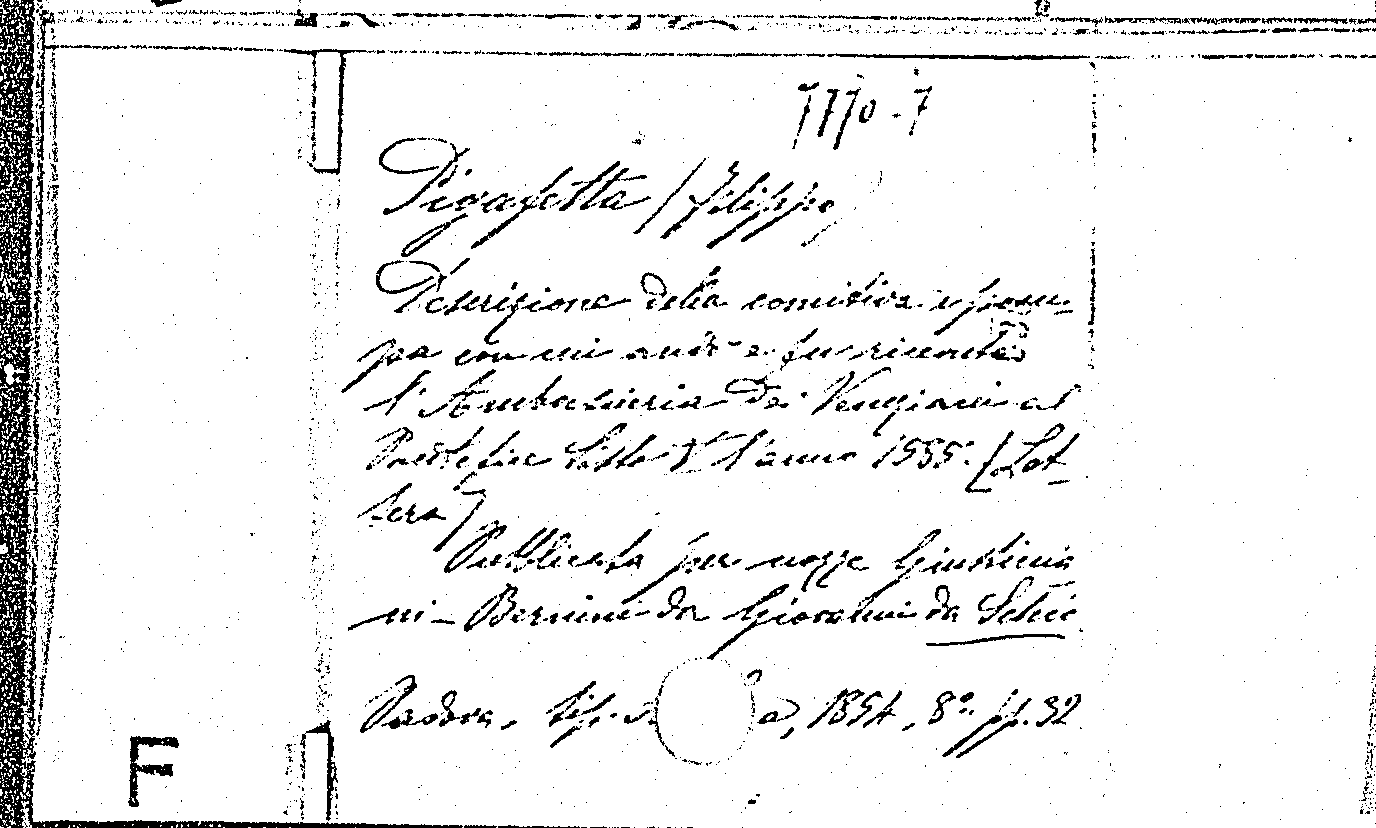 7770-7
Pigafetta / Filippo
Descrizione della comitiva e pom-
pa con cui andò e fu ricevuta
l'Ambasceria dei Veneziani al
Pontefice Sisto V l'anno 1585. [Let-
tera]
Pubblicata per nozze Giustinia
ni-Bernini da Giovanni da Schio
Padova, tip. a, 1854, 8° pp. 32
F